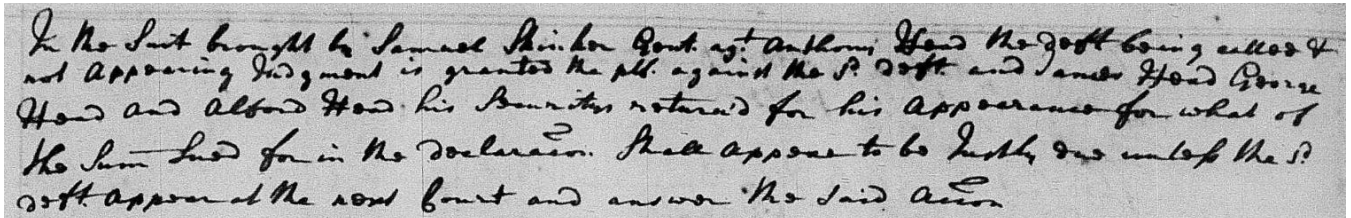 In the Suit brought by Samuel Skinker Gent. agt. Anthony Head the deft being called &
not Appearing Judgment is granted the plt. against the sd. deft. and James Head George
Head and Alford Head his Securitys return'd for his Appearance for what of
the Sum Sued for in the declaracon. Shall Appear to be Justly due unless the sd.
deft Appear at the next Court and answer the said Accon